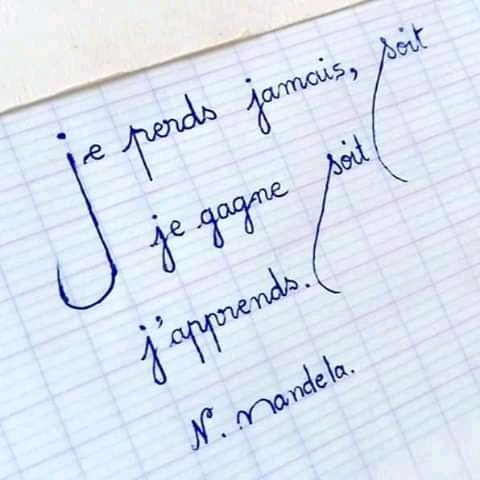 je perds jamais, soit
je gagne soit
j'apprends.
N. Mandela.